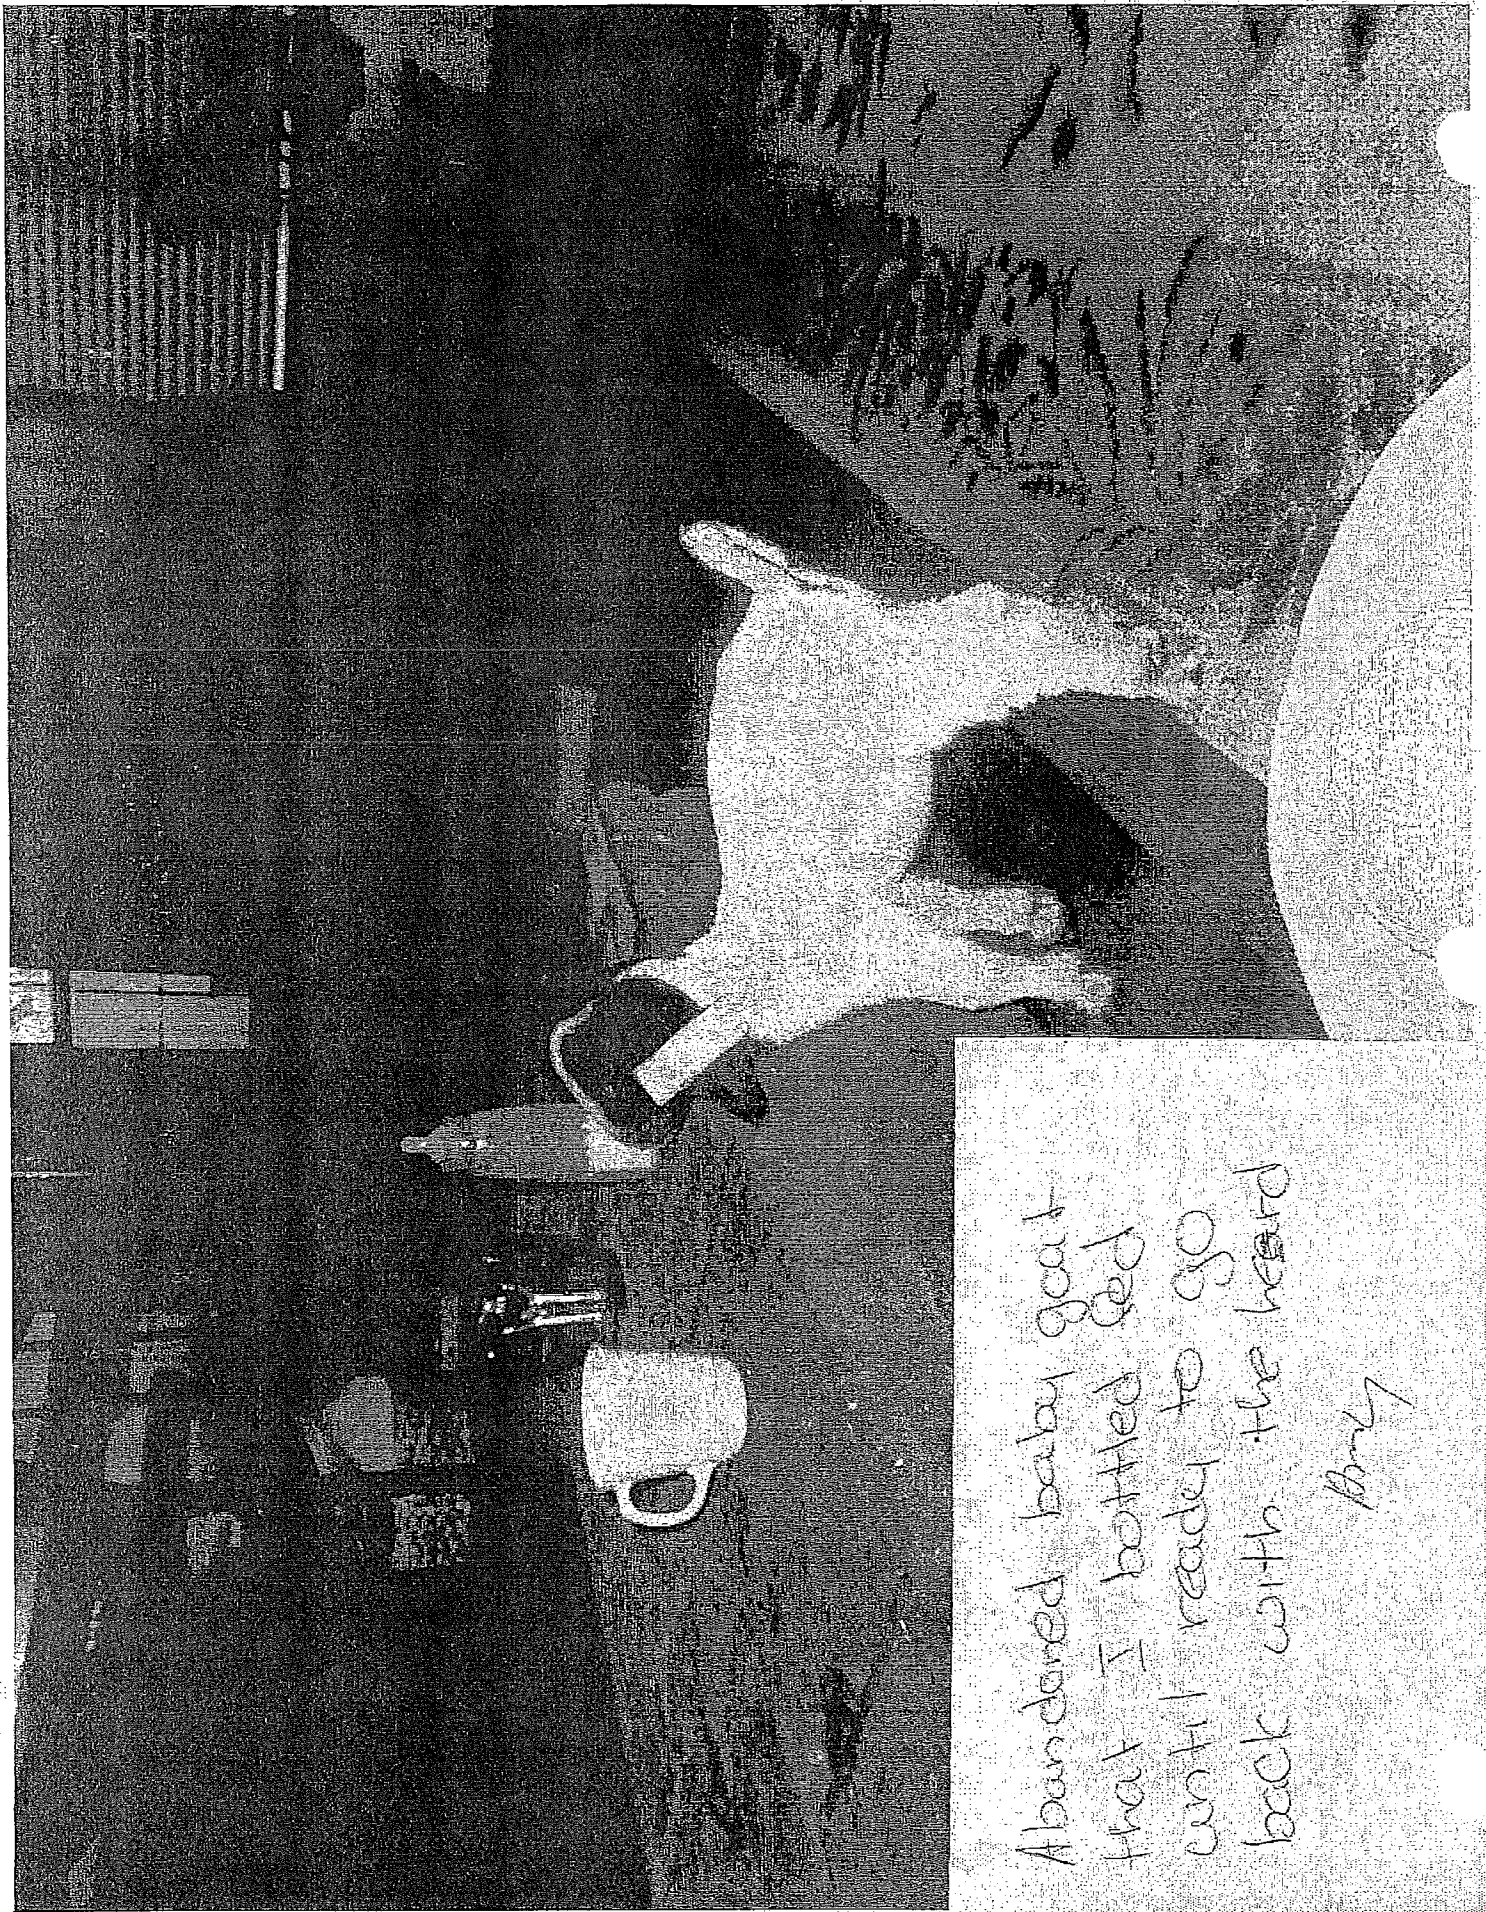 Abandoned baby goat
that I bottled fed
untill ready to go
back with the heard